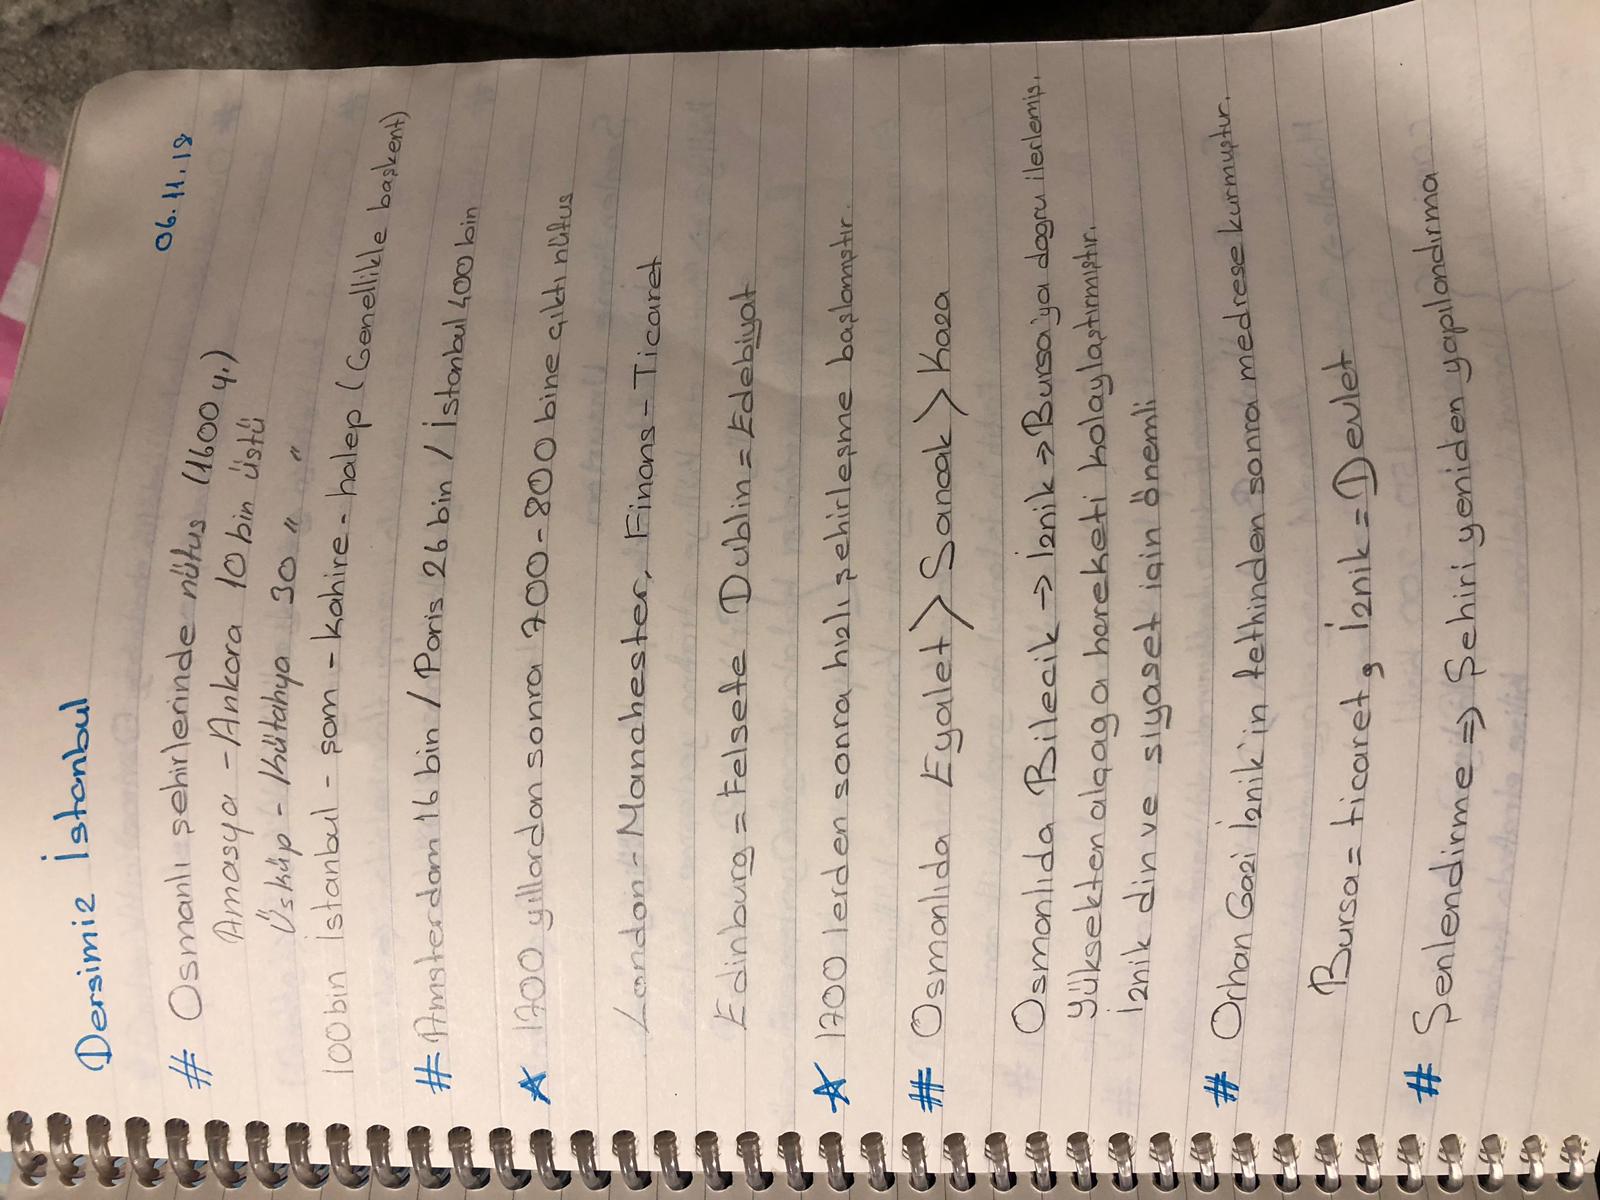 Dersimiz İstanbul
06.11.18
# Osmanlı şehirlerinde nüfus (1600 y.)
Amasya - Ankara 10 bin üstü
Üsküp - Kütahya 30 " "
100 bin İstanbul - şam - kahire - halep (Genellikle başkent)
# Amsterdam 16 bin / Paris 26 bin / İstanbul 400 bin
☆ 1700 yıllardan sonra 700-800 bine çıktı nüfus
London - Manchester, Finans - Ticaret
Edinburg = Felsefe Dublin = Edebiyat
☆ 1700 lerden sonra hızlı şehirleşme başlamıştır.
# Osmanlıda Eyalet > Sancak > Kaza
Osmanlıda Bilecik → İznik → Bursa'ya dogru ilerlemiş.
yüksekten alçaga hareketi kolaylaştırmıştır.
İznik din ve siyaset için önemli
# Orhan Gazi İznik'in fethinden sonra medrese kurmuştur.
Bursa = ticaret, İznik = Devlet
# Şenlendirme ⇒ Şehiri yeniden yapılandırma